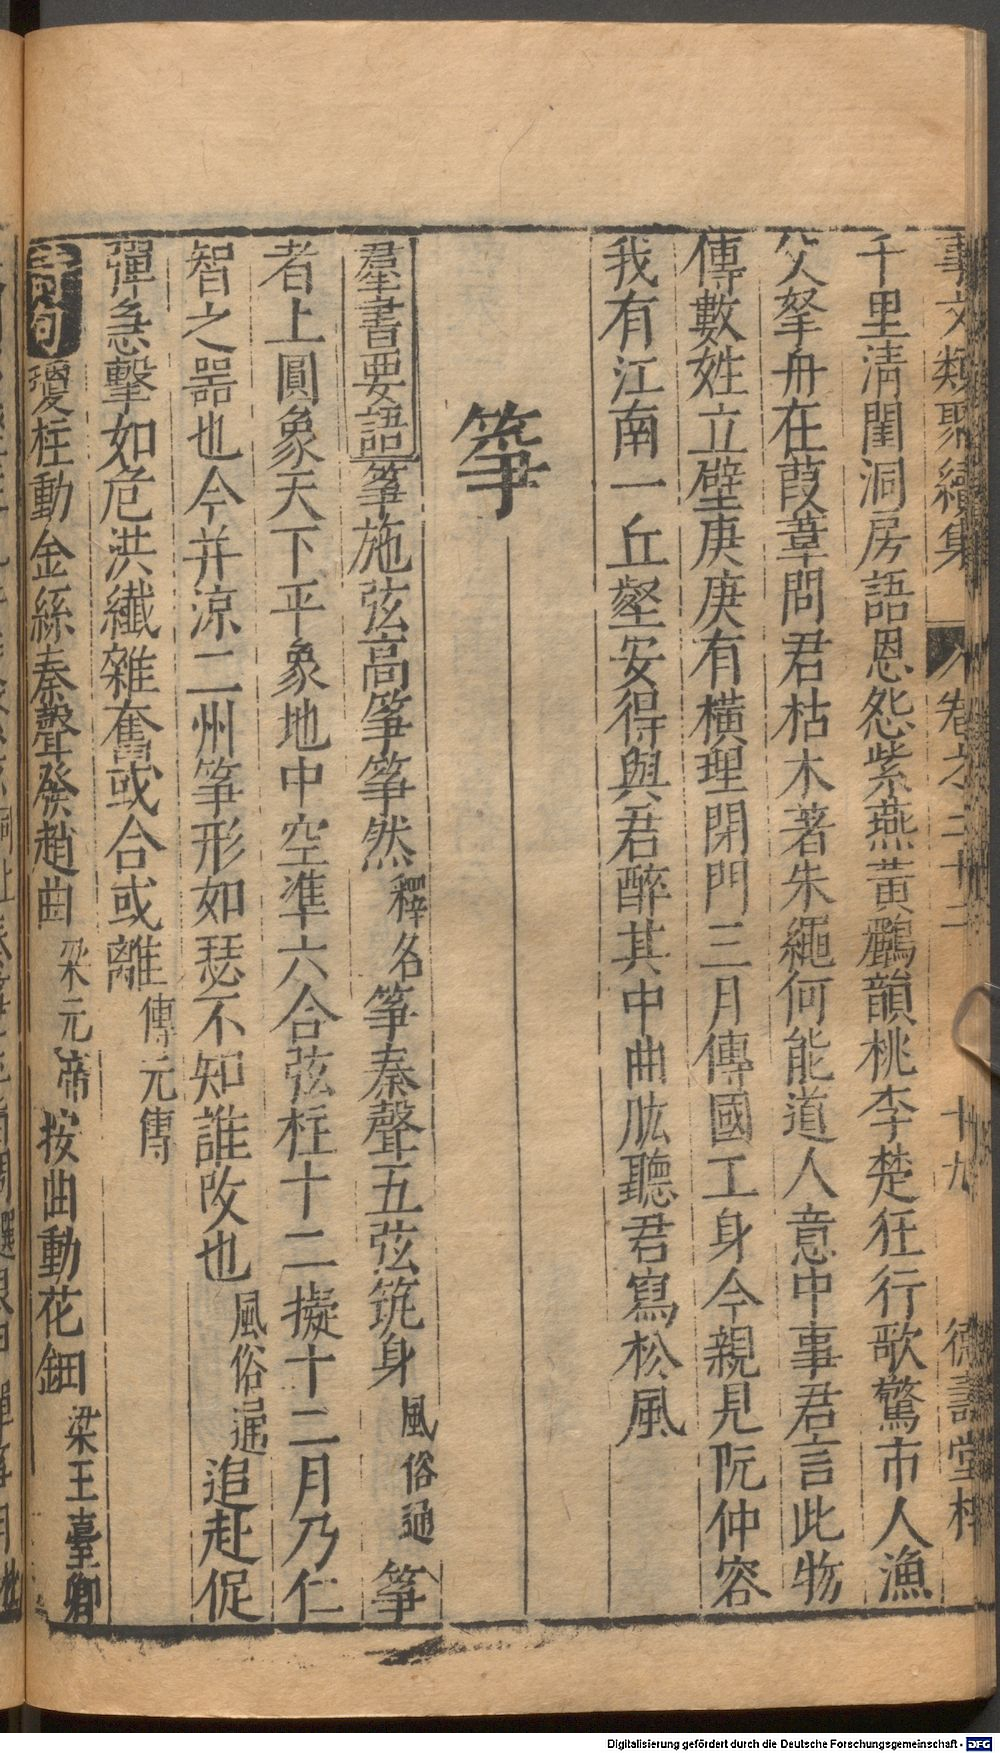 事文類聚續集 卷之二十二 十九 德壽堂梓
千里清閨洞房語恩怨紫燕黃鸝韻桃李楚狂行歌驚市人漁
父拏舟在葭葦問君枯木著朱繩何能道人意中事君言此物
傳數姓立壁庚庚有橫理閉門三月傳國工身今親見阮仲容
我有江南一丘壑安得與君醉其中曲肱聽君寫松風
箏
羣書要語箏施弦高箏箏然釋名箏秦聲五弦筑身風俗通箏
者上圓象天下平象地中空準六合弦柱十二擬十二月乃仁
智之噐也今并涼二州箏形如瑟不知誰改也風俗通追赴促
彈急擊如危洪纖雜奮或合或離傳元傳
句瓊柱動金絲秦聲發趙曲梁元帝按曲動花鈿梁王臺卿
Digitalisierung gefördert durch die Deutsche Forschungsgemeinschaft - DFG